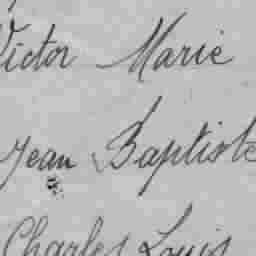 Victor Marie
Jean Baptiste
Charles Louis